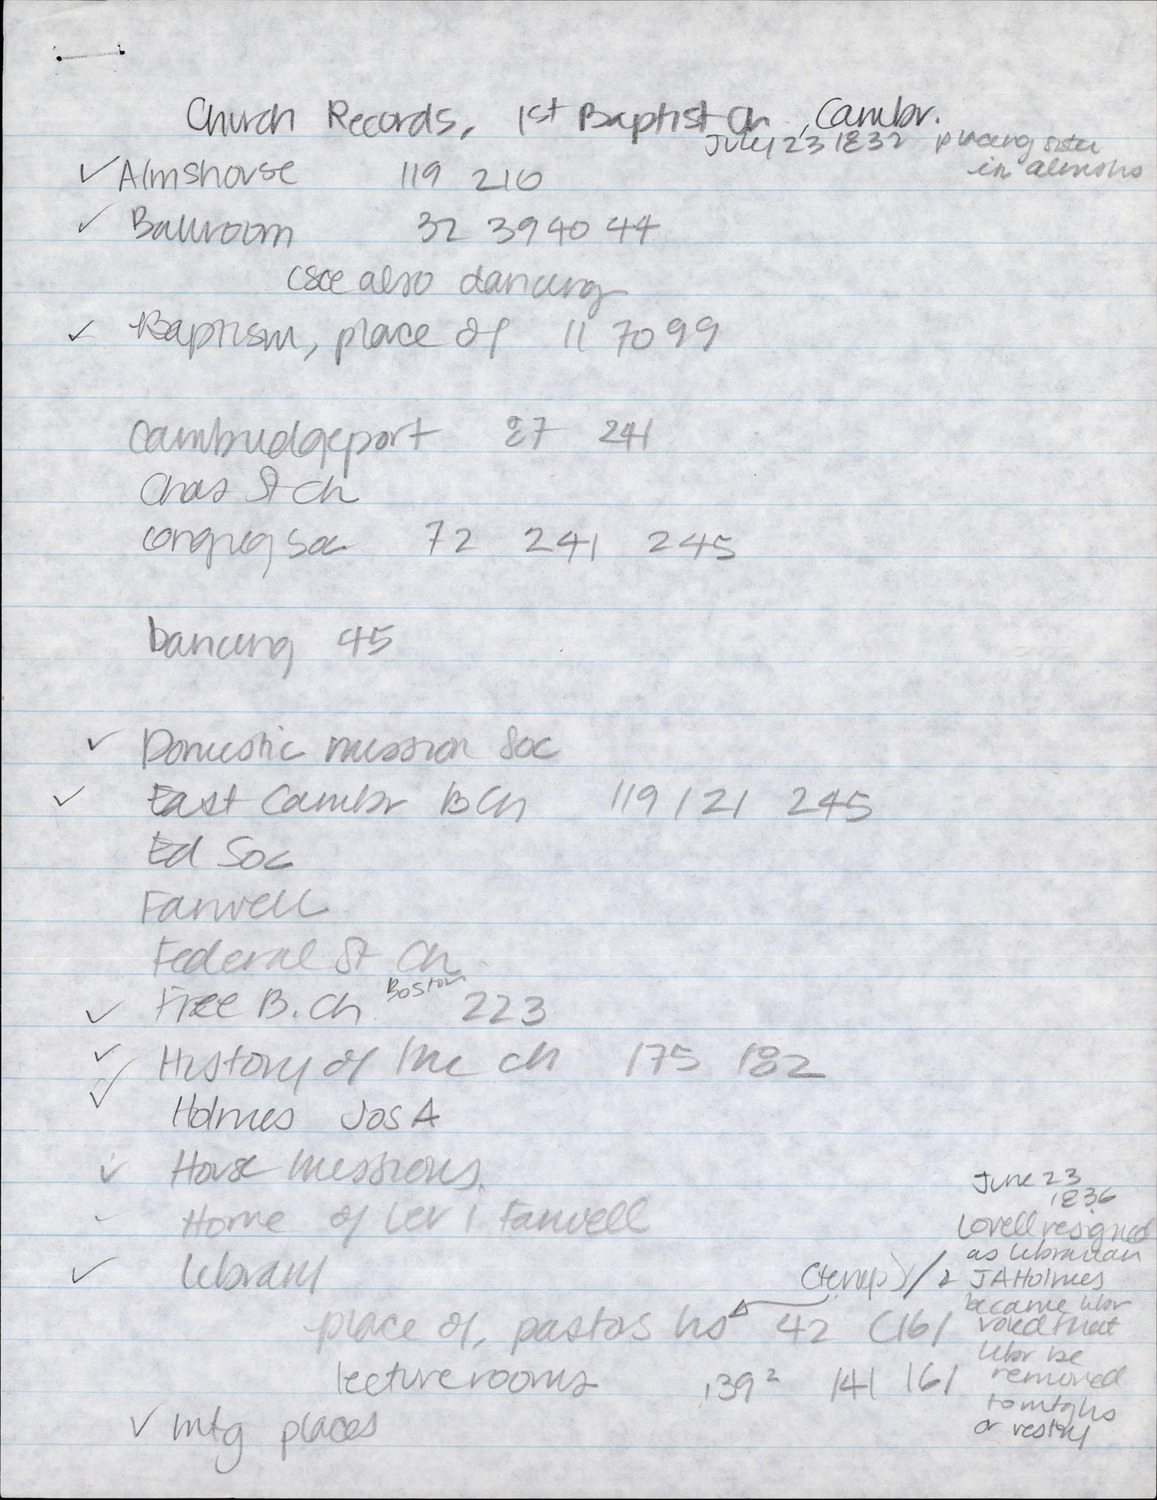 Church Records, 1st Baptist Ch, Cambr.
July 23 1832 placing sister
in almshs
✓ Almshouse 119 210
✓ Ballroom 32 39 40 44
(see also dancing
✓ Baptism, place of 11 70 99
Cambridgeport 87 241
Chas St Ch
Congreg Soc 72 241 245
Dancing 45
✓ Domestic mission Soc
✓ East Cambr B Ch 119 121 245
Ed Soc
Farwell
Federal St Ch
✓ Free B. Ch Boston 223
✓ History of the ch 175 182
✓ Holmes Jos A
✓ House missions
✓ Home of Levi Farwell
✓ library
(temp)
place of, pastors hs 42 (161
lecture rooms 139² 141 161
✓ mtg places
June 23
1836
Lovell resigned
as librarian
JAHolmes
became libr
voted that
libr be
removed
to mtghs
or vestry